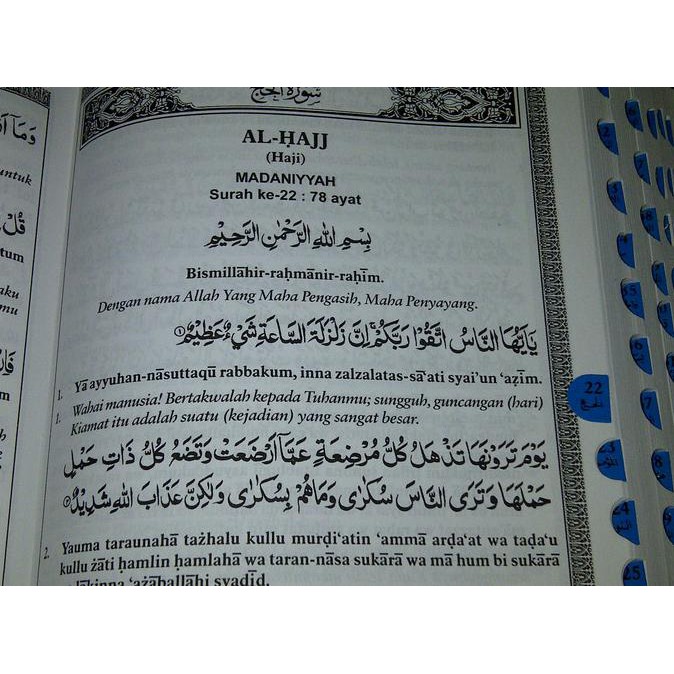 سورة الحج
AL-ḤAJJ
(Haji)
MADANIYYAH
Surah ke-22 : 78 ayat
بِسْمِ اللّٰهِ الرَّحْمٰنِ الرَّحِيْمِ
Bismillāhir-raḥmānir-raḥīm.
Dengan nama Allah Yang Maha Pengasih, Maha Penyayang.
يٰٓاَيُّهَا النَّاسُ اتَّقُوْا رَبَّكُمْۚ اِنَّ زَلْزَلَةَ السَّاعَةِ شَيْءٌ عَظِيْمٌ ١
1. Yā ayyuhan-nāsuttaqū rabbakum, inna zalzalatas-sā‘ati syai'un ‘aẓīm.
1. Wahai manusia! Bertakwalah kepada Tuhanmu; sungguh, guncangan (hari)
Kiamat itu adalah suatu (kejadian) yang sangat besar.
يَوْمَ تَرَوْنَهَا تَذْهَلُ كُلُّ مُرْضِعَةٍ عَمَّآ اَرْضَعَتْ وَتَضَعُ كُلُّ ذَاتِ حَمْلٍ
حَمْلَهَا وَتَرَى النَّاسَ سُكٰرٰى وَمَا هُمْ بِسُكٰرٰى وَلٰكِنَّ عَذَابَ اللّٰهِ شَدِيْدٌ ٢
2. Yauma taraunahā tażhalu kullu murḍi‘atin ‘ammā arḍa‘at wa taḍa‘u
kullu żāti ḥamlin ḥamlahā wa taran-nāsa sukārā wa mā hum bi sukārā
wa lākinna ‘ażāballāhi syadīd.
وَمَآ
untuk
قُلْ
tum
aku
mu
22
الحج
23
24
25